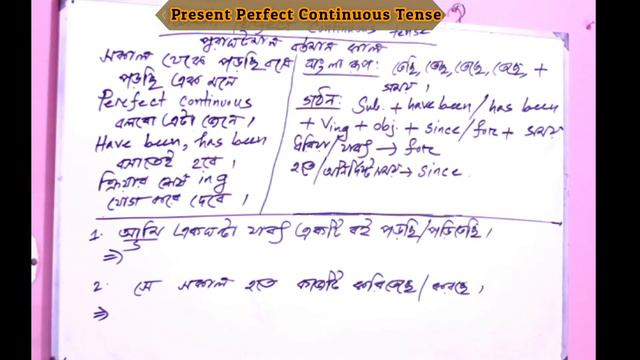 Present Perfect Continuous Tense
Continuous tense
পুরাঘটমান বর্তমান কাল
সকাল থেকে পড়ছি বসে
পড়ছি এক মনে
Perefect Continuous
বলবো এটা জেনে।
Have been, has been
বসাতেই হবে।
ক্রিয়ার শেষে ing
যোগ করে দেবে।
বাংলা রূপ: তেছি, তেছ, তেছে, +
সময়।
গঠন: Sub. + have been/has been
+ Ving + obj. + since/fore + সময়
যাবৎ → fore
হতে/ → Since
1. আমি একঘন্টা যাবৎ একটি বই পড়ছি/পড়িতেছি।
⇒
2. সে সকাল হতে কাজটি করিতেছে/করছে।
⇒